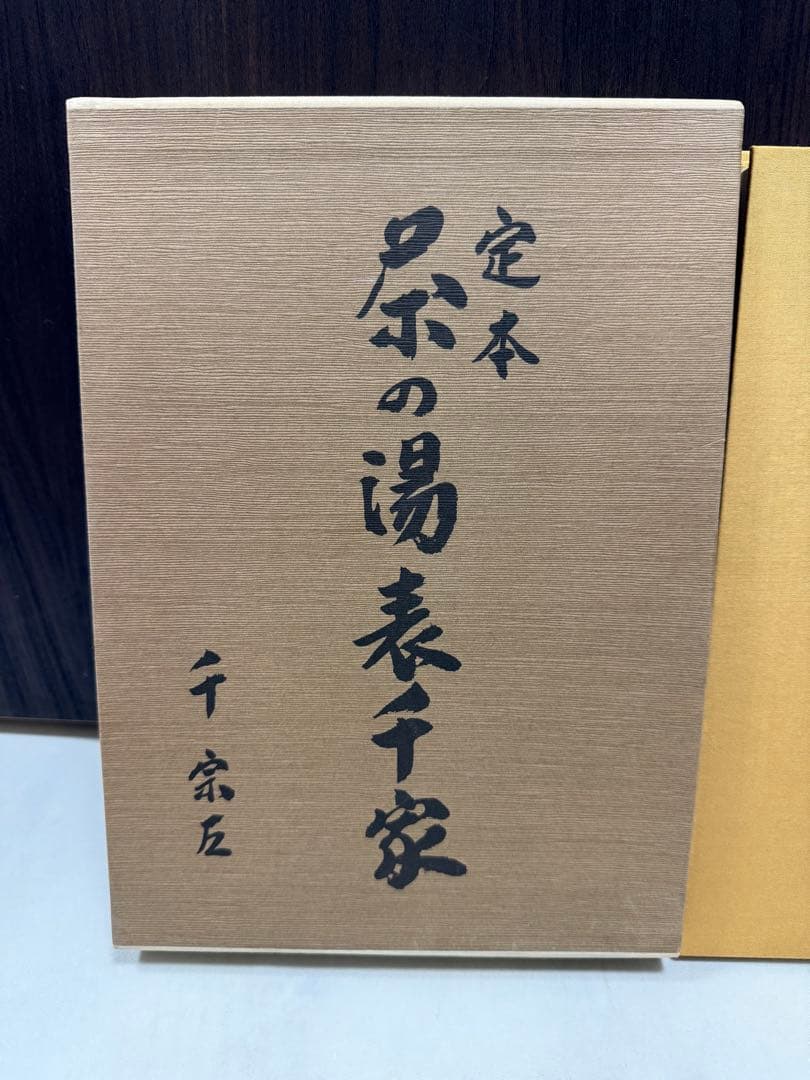 定本
茶の湯表千家
千宗左